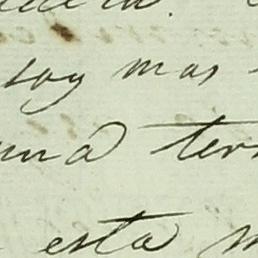 soy mas
una ter
esta m